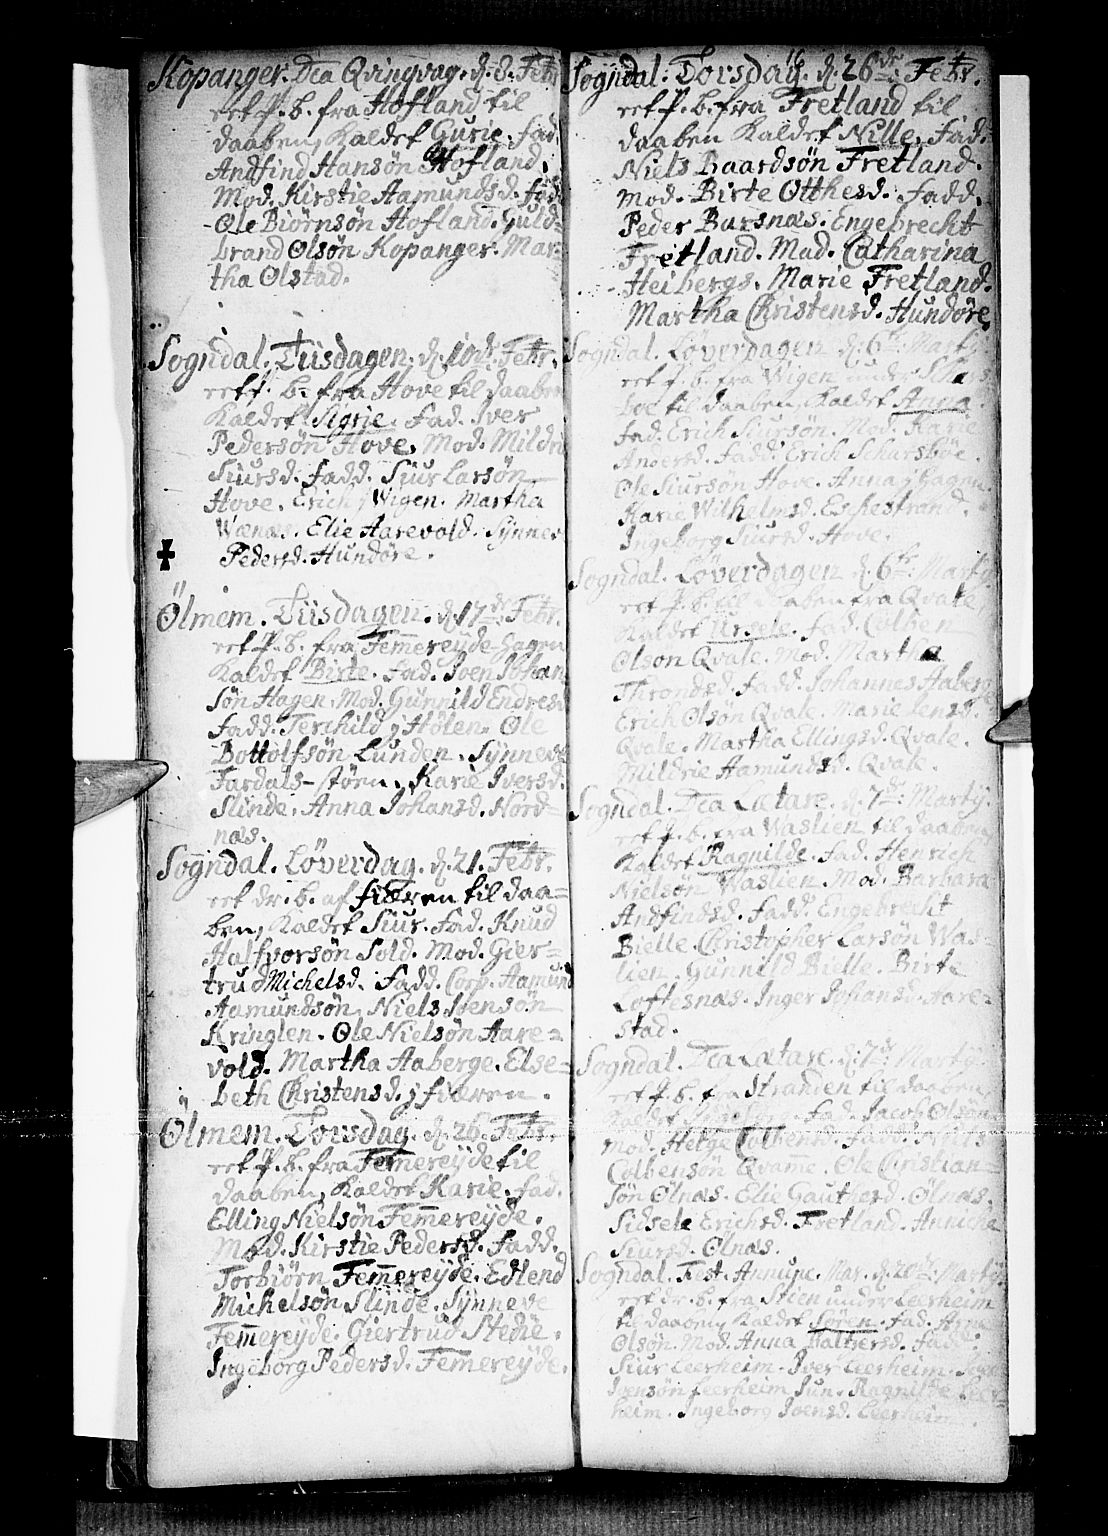 Kopanger. Dca Qvinqvag. d. 8. Febr.
eet P. b. fra Hofland til
daaben, Kaldet Gurie. fad.
Andfind Hansön Hofland.
Mod. Kirstie Aamundsd. fadd.
Ole Biörnsön Hofland. Guld=
brand Olsön Kopanger. Mar=
tha Olstad.
Sogndal. Tiisdagen. d. 10de. Febr.
eet P. b. fra Hove til daaben
Kaldet Sigrie. fad. Iver
Pedersön Hove. Mod. Mildri
Siursd. fadd. Siur Larsön
Hove. Erich Wigen. Martha
Wænas. Elie Aarevold. Synnev
Pedersd. Hundöre.
Ölmem. Tiisdagen. d. 17de. Febr.
eet P. b. fra Femmereyde-hagen
Kaldet Birte. fad. Joen Johan
sön Hagen. Mod. Gunnild Endresd.
fadd. Terchild j Hölen. Ole
Bottolfsön Lunden. Synneve
Fardals-störn. Karie Iversd.
Slinde. Anna Johansd. Nord=
nas.
Sogndal. Löverdag. d. 21. Febr.
eet dr. b. af fiæren til daa=
ben, Kaldet Siur. fad. Knud
Halfvorsön Sold. Mod. Gier=
trud Michelsd. fadd. Corp. Aamund
Aamundsön, Niels Joensön
Kringlen. Ole Nielsön Aare=
vold. Martha Aaberge. Else=
beth Christensd. j fiæren.
Ölmem. Torsdag. d. 26. Febr.
eet P. b. fra Femmereyde til
daaben, Kaldet Karie. fad.
Elling Nielsön Femmereyde.
Mod. Kirstie Pedersd. fadd.
Torbiörn Femmereyde. Edlend
Michelsön Slinde. Synneve
Femmereyde. Giertrud Stedie.
Ingeborg Pedersd. Femereyde.
Sogndal. Torsdag. d. 26de. Febr.
eet P. b. fra Fretland til
daaben Kaldet Nille. fad.
Niels Baardsön Fretland.
Mod. Birte Otthesd. fadd.
Peder Barsnæs. Engebrecht
Fretland. Mad. Catharina
Heibergs. Marie Fretland.
Martha Christensd. Hundöre.
Sogndal. Löverdagen d. 6te. Martij.
eet P. b. fra Wigen under Schars
böe til daaben, Kaldet Anna.
fad. Erich Siursön. Mod. Karie
Andersd. fadd. Erich Scharsböe.
Ole Siursön Hove. Anna j hagen.
Karie Wilhelmsd. Eskestrand.
Ingeborg Siursd. Hove.
Sogndal. Löverdagen d. 6te. Martij.
eet P. b. til daaben fra Qvale,
Kaldet Ursele. fad. Colben
Olson Qvale. Mod. Martha
Throndsd. fadd. Johannes Aaberge
Erich Olsön Qvale. Marie Jensd.
Qvale. Martha Ellingsd. Qvale.
Mildrie Aamundsd. Qvale.
Sogndal. Dca Lætare. d. 7de. Martij.
eet P. b. fra Waslien til daaben,
Kaldet Ragnilde. fad. Henrich
Nielsön Waslien. Mod. Barbara
Andfindsd. fadd. Engebrecht
Bielle. Christopher Larsön Was=
lien. Gunnild Bielle. Birte
Loftesnæs. Inger Johansd. Aare=
stad.
Sogndal. Dca Lætare. d. 7de. Martij.
eet P. b. fra Stranden til daaben
Kaldet fad. Jacob Olsön
Mod. Helge Colbensd. fadd. Niels
Colbensön Qvamme. Ole Christian=
sön Ölnæs. Elie Gautnesd. Ölnæs.
Sidsele Erichsd. Fretland. Annicha
Siursd. Ölnæs.
Sogndal. Fest. Annunc. Mar. d. Martij
eet dr. b. fra Stien under Leerheim
til daaben, Kaldet Sören. fad.
Olsön. Mod. Anna fadd.
Siur Leerheim. Iver Leerheim.
Joensön Leerheim Jun. Ragnilde Leer=
heim. Ingeborg Joensd. Leerheim.